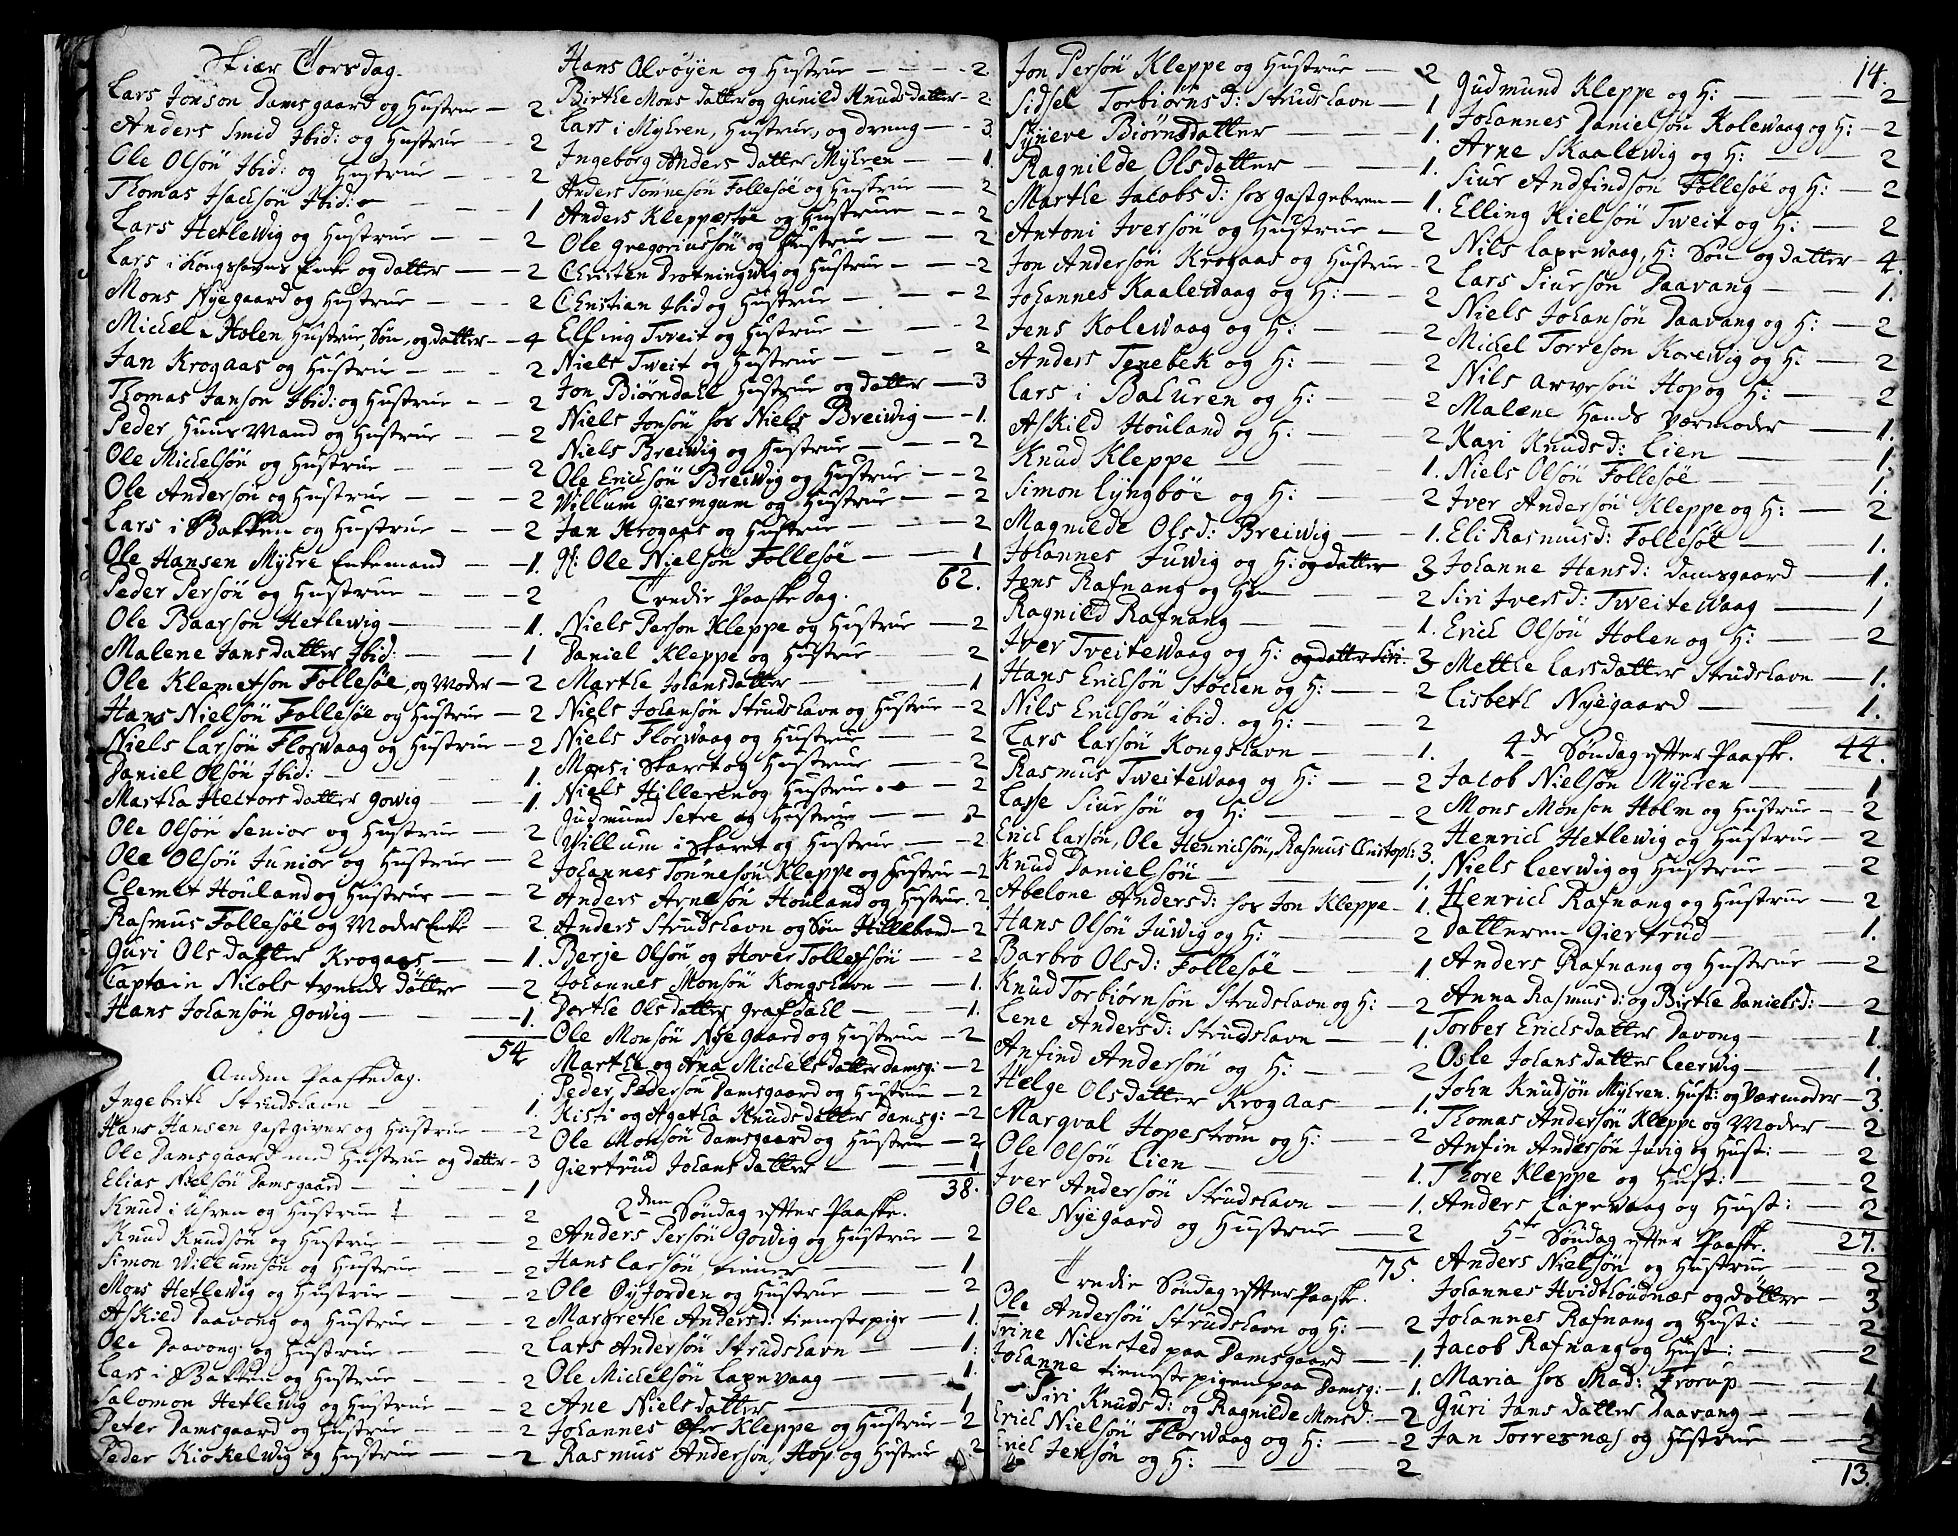 Skiær Torsdag.
Lars Jonson Damsgaard og Hustrue — 2
Anders Smid Ibid: og Hustrue — 2
Ole Olsön Ibid: og Hustrue — 2
Thomas Isachsön Ibid: — 1
Lars Hetlewig og Hustrue — 2
Lars i Kongshavns Enke og datter — 2
Mons Nyegaard og Hustrue — 2
Michel Holen Hustrue, Søn, og datter — 4
Jan Krogaas og Hustrue — 2
Thomas Janson Ibid: og Hustrue — 2
Peder Huus Mand og Hustrue — 2
Ole Michelsön og Hustrue — 2
Ole Andersön og Hustrue — 2
Lars i Bakken og Hustrue — 2
Ole Hansen Myhre Enkemand — 1.
Peder Persön og Hustrue — 2
Ole Baarson Hetlewig — 1.
Malene Jansdatter Ibid: — 1
Ole Klemetson Follesöe, og Moder — 2
Hans Nielsön Follesöe og Hustrue — 2
Niels Larsön Florwaag og Hustrue — 2
Daniel Olsön Ibid: — 1.
Martha Hectors datter Gowig — 1.
Ole Olsön Senior og Hustrue — 2
Ole Olsön Junior og Hustrue — 2
Clemet Houland og Hustrue — 2
Rasmus Follesöe og Moder Enke — 2
Guri Olsdatter Krogaas — 1.
Captain Nicols tvende döttre — 2
Hans Johansön Gowig — 1.
54
Anden Paaskedag.
Ingebrith Strudshavn — 1.
Hans Hansen gastgiver og Hustrue — 2
Ole Damsgaard med Hustrue og datter — 3
Elias Nielsön Damsgaard — 1
Knud i Uhren og Hustrue — 2
Knud Knudsön og Hustrue — 2
Simon Willumsön og Hustrue — 2
Mons Hetlewig og Hustrue — 2
Askild Daavong og Hustrue — 2
Ole Daavong og Hustrue — 2
Lars i Bakken og Hustrue — 2
Salomon Hetlewig og Hustrue — 2
Peter Damsgaard og Hustrue — 2
Peder Kiökelwig og Hustrue — 2
Hans Alvöyen og Hustrue — 2
Birthe Mons datter og Gunild Knudsdatter — 2
Lars i Myhren, Hustrue, og dreng — 3.
Ingeborg Anders datter Myhren — 1.
Anders Tönnesön Follesöe og Hustrue — 2
Anders Kleppesöe og Hustrue — 2
Ole Gregoriussön og Hustrue — 2
Christen Drotningwig og Hustrue — 2
Christian Ibid og Hustrue — 2
Elling Tveit og Hustrue — 2
Niels Tweit og Hustrue — 2
Jon Biørndall Hustrue og datter — 3
Niels Jonsön hos Niels Breiwig — 1.
Niels Breiwig og Hustrue — 2
Ole Ericksön Breiwig og Hustrue — 2
Willum Giermgum og Hustrue — 2
Jan Krogaas og Hustrue — 2
gl: Ole Nielsön Follesöe — 1
62.
Tredie Paaske dag.
Niels Person Kleppe og Hustrue — 2
Daniel Kleppe og Hustrue — 2
Marthe Johansdatter — 1
Niels Johansön Strudshavn og Hustrue — 2
Niels Florwaag og Hustrue — 2
Mons i Skaret og Hustrue — 2
Niels Hilleren og Hustrue — 2
Gudmund Setre og Hustrue — 2
Willum i Skaret og Hustrue — 2
Johannes Tönnesön Kleppe og Hustrue — 2
Anders Arnesön Houland og Hustrue — 2.
Anders Strudshavn og Søn Hillebrand — 2
Berje Olsön og Hover Tollefsön — 2
Johannes Monsön Kongshavn — 1.
Dorthe Olsdatter Grafdahl — 1.
Ole Monsön Nyegaard og Hustrue — 2
Marthe og Ana Michelsdatter Damsg: — 2
Peder Pedersön Damsgaard og Hustrue — 2
Kisti og Agatha Knudsdatter Damsg: — 2
Ole Monsön Damsgaard og Hustrue — 2
Giertrud Johansdatter — 1
38.
2den Søndag efter Paaske.
Anders Persön Gowig og Hustrue — 2
Hans Larsön, tiener — 1
Ole Öyjorden og Hustrue — 2
Margrethe Andersd: tienestepige — 1.
Lars Andersön Strudshavn — 1.
Ole Michelsön Lapewaag — 1.
Ane Nielsdatter — 1
Johannes Kleppe og Hustrue — 2
Rasmus Andersön, Hop og Hustrue — 2
14.
Jon Persön Kleppe og Hustrue — 2
Sidsel Torbiørns d: Strudshavn — 1.
Syneve Biørnsdatter — 1.
Ragnilde Olsdatter — 1.
Marthe Jacobs d: hos gastgeberen — 1.
Antoni Iversön og Hustrue — 2
Jon Andersön Krogaas og Hustrue — 2
Johannes Kaalewaag og H: — 2
Jens Kolewaag og H: — 2
Anders Tenebek og H: — 2
Lars i Bahuren og H: — 2
Askild Houland og H: — 2
Knud Kleppe — 1.
Simon Lyngböe og H: — 2
Magnilde Olsd: Breiwig — 1.
Johannes Juwig og H: og datter 3
Jens Rafnang og H — 2
Ragnild Rafnang — 1.
Iver Tveitewaag og H: og datter Siri. 3
Hans Ericksön Stöchen og H: — 2
Nils Ericksön ibid. og H: — 2
Lars Larsön Kongshavn — 1.
Rasmus Tweitewaag og H: — 2
Lasse Siursön og H: — 2
Erick Larsön, Ole Henricksön, Rasmus Christoph: 3.
Knud Danielsön — 1.
Abelone Andersd: hos Jon Kleppe — 1.
Hans Olsön Juwig og H: — 2
Barbro Olsd: Follesöe — 1.
Knud Torbiørnsön Strudshavn og H: 2
Lene Andersd: Strudshavn — 1.
Anfind Andersön og H: — 2
Helge Olsdatter Krogaas — 1.
Marqval Hopestrøm og H: — 2
Ole Olsön Lien — 1.
Iver Andersön Strudshavn — 1.
Ole Nyegaard og Hustrue — 2
75.
Tredie Søndag efter Paaske.
Ole Andersön Strudshavn og H: — 2
Trine Niensted paa Damsgaard — 1.
Johanne tienestepigen paa Damsg: — 1.
Siri Knudsd: og Ragnilde Monsd: — 2
Erick Nielsön Florwaag og H: — 2
Erick Jensön og H: — 2
Gudmund Kleppe og H: — 2
Johannes Danielsön Kolewaag og H: — 2
Arne Skaalewig og H: — 2
Siur Andfindsön Follesöe og H: — 2
Elling Nielsön Tweit og H: — 2
Nils Lapewaag, H: Søn og datter — 4.
Lars Siursön Daavang — 1.
Niels Johansön Daavang og H: — 2
Michel Torreson Korewig og H: — 2
Nils Arvesön Hop og H: — 2
Malene Hands Værmoder — 1.
Kari Knudsd: Lien — 1.
Niels Olsön Follesöe — 1.
Iver Andersön Kleppe og H: — 2
Eli Rasmusd: Follesöe — 1.
Johanne Hansd: Damsgaard — 1.
Siri Iversd: Tweitewaag — 1
Erick Olsön Holen og H: — 2
Mette Larsdatter Strudshavn — 1.
Lisbeth Nyegaard — 1.
44.
4de Søndag efter Paaske.
Jacob Nielsön Myhren — 1
Mons Monson Holm og Hustrue — 2
Henrich Hetlewig og Hustrue — 2
Niels Leerwig og Hustrue — 2
Henrich Rafnang og Hustrue — 2
datteren Giertrud — 1.
Anders Rafnang og Hustrue — 2
Anna Rasmusd: og Birthe Danielsd: — 2
Torber Ericksdatter Davong — 1.
Osle Johansdatter Leerwig — 1.
John Knudsön Myhren. Hust: og Værmoder — 3.
Thomas Andersön Kleppe og Moder — 2
Anfin Andersön Juvig og Hust: — 2
Thore Kleppe og Hust: — 2
Anders Lapewaag og Hust: — 2
27.
5te Søndag efter Paaske.
Anders Nielsön og Hustrue — 2
Johannes Hvidthoudnæs og döttre — 3
Johannes Rafnang og Hust: — 2
Jacob Rafnang og Hust: — 2
Maria hos Mad: Frorup — 1
Guri Jansdatter Daavang — 1
Jan Torresnæs og Hustrue — 2
13.